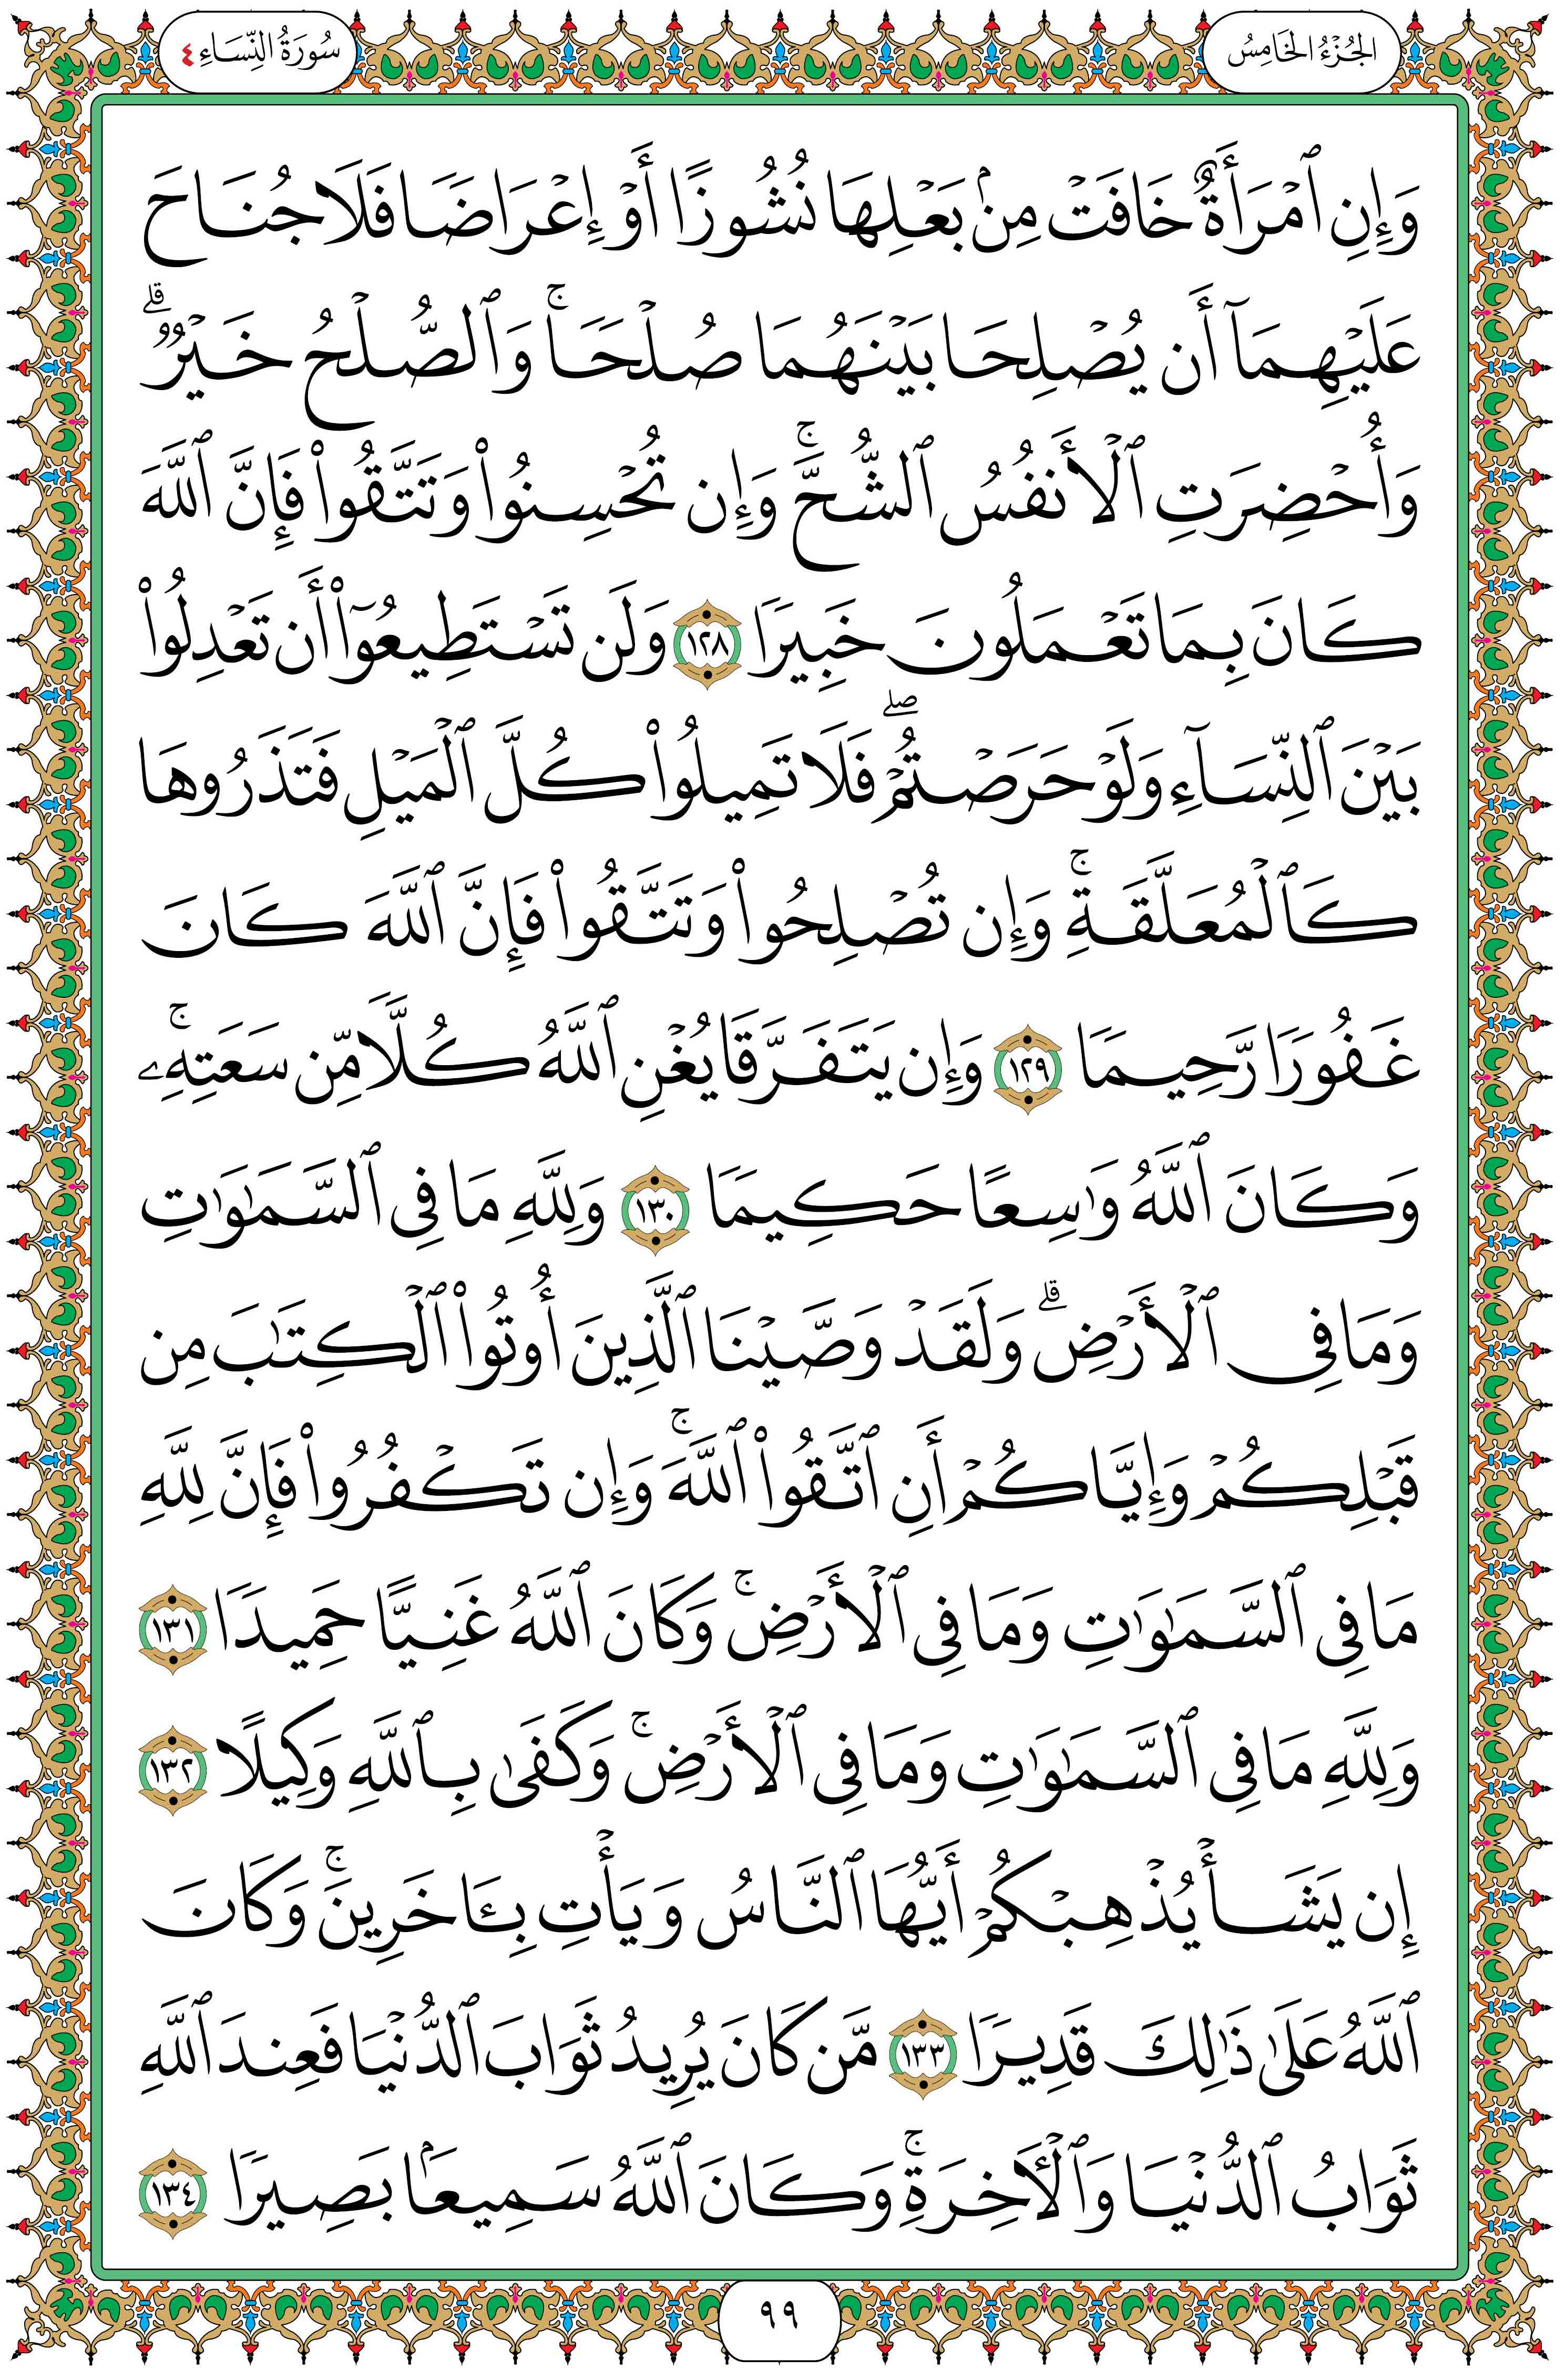 الجُزْءُ الخَامِسُ
سُورَةُ النِّسَاءِ ٤
وَإِنِ ٱمْرَأَةٌ خَافَتْ مِنۢ بَعْلِهَا نُشُوزًا أَوْ إِعْرَاضًا فَلَا جُنَاحَ
عَلَيْهِمَآ أَن يُصْلِحَا بَيْنَهُمَا صُلْحًا ۚ وَٱلصُّلْحُ خَيْرٌ ۗ
وَأُحْضِرَتِ ٱلْأَنفُسُ ٱلشُّحَّ ۚ وَإِن تُحْسِنُوا۟ وَتَتَّقُوا۟ فَإِنَّ ٱللَّهَ
كَانَ بِمَا تَعْمَلُونَ خَبِيرًا ١٢٨ وَلَن تَسْتَطِيعُوٓا۟ أَن تَعْدِلُوا۟
بَيْنَ ٱلنِّسَآءِ وَلَوْ حَرَصْتُمْ ۖ فَلَا تَمِيلُوا۟ كُلَّ ٱلْمَيْلِ فَتَذَرُوهَا
كَٱلْمُعَلَّقَةِ ۚ وَإِن تُصْلِحُوا۟ وَتَتَّقُوا۟ فَإِنَّ ٱللَّهَ كَانَ
غَفُورًا رَّحِيمًا ١٢٩ وَإِن يَتَفَرَّقَا يُغْنِ ٱللَّهُ كُلًّا مِّن سَعَتِهِۦ ۚ
وَكَانَ ٱللَّهُ وَٰسِعًا حَكِيمًا ١٣٠ وَلِلَّهِ مَا فِى ٱلسَّمَٰوَٰتِ
وَمَا فِى ٱلْأَرْضِ ۗ وَلَقَدْ وَصَّيْنَا ٱلَّذِينَ أُوتُوا۟ ٱلْكِتَٰبَ مِن
قَبْلِكُمْ وَإِيَّاكُمْ أَنِ ٱتَّقُوا۟ ٱللَّهَ ۚ وَإِن تَكْفُرُوا۟ فَإِنَّ لِلَّهِ
مَا فِى ٱلسَّمَٰوَٰتِ وَمَا فِى ٱلْأَرْضِ ۚ وَكَانَ ٱللَّهُ غَنِيًّا حَمِيدًا ١٣١
وَلِلَّهِ مَا فِى ٱلسَّمَٰوَٰتِ وَمَا فِى ٱلْأَرْضِ ۚ وَكَفَىٰ بِٱللَّهِ وَكِيلًا ١٣٢
إِن يَشَأْ يُذْهِبْكُمْ أَيُّهَا ٱلنَّاسُ وَيَأْتِ بِـَٔاخَرِينَ ۚ وَكَانَ
ٱللَّهُ عَلَىٰ ذَٰلِكَ قَدِيرًا ١٣٣ مَّن كَانَ يُرِيدُ ثَوَابَ ٱلدُّنْيَا فَعِندَ ٱللَّهِ
ثَوَابُ ٱلدُّنْيَا وَٱلْـَٔاخِرَةِ ۚ وَكَانَ ٱللَّهُ سَمِيعًۢا بَصِيرًا ١٣٤
٩٩